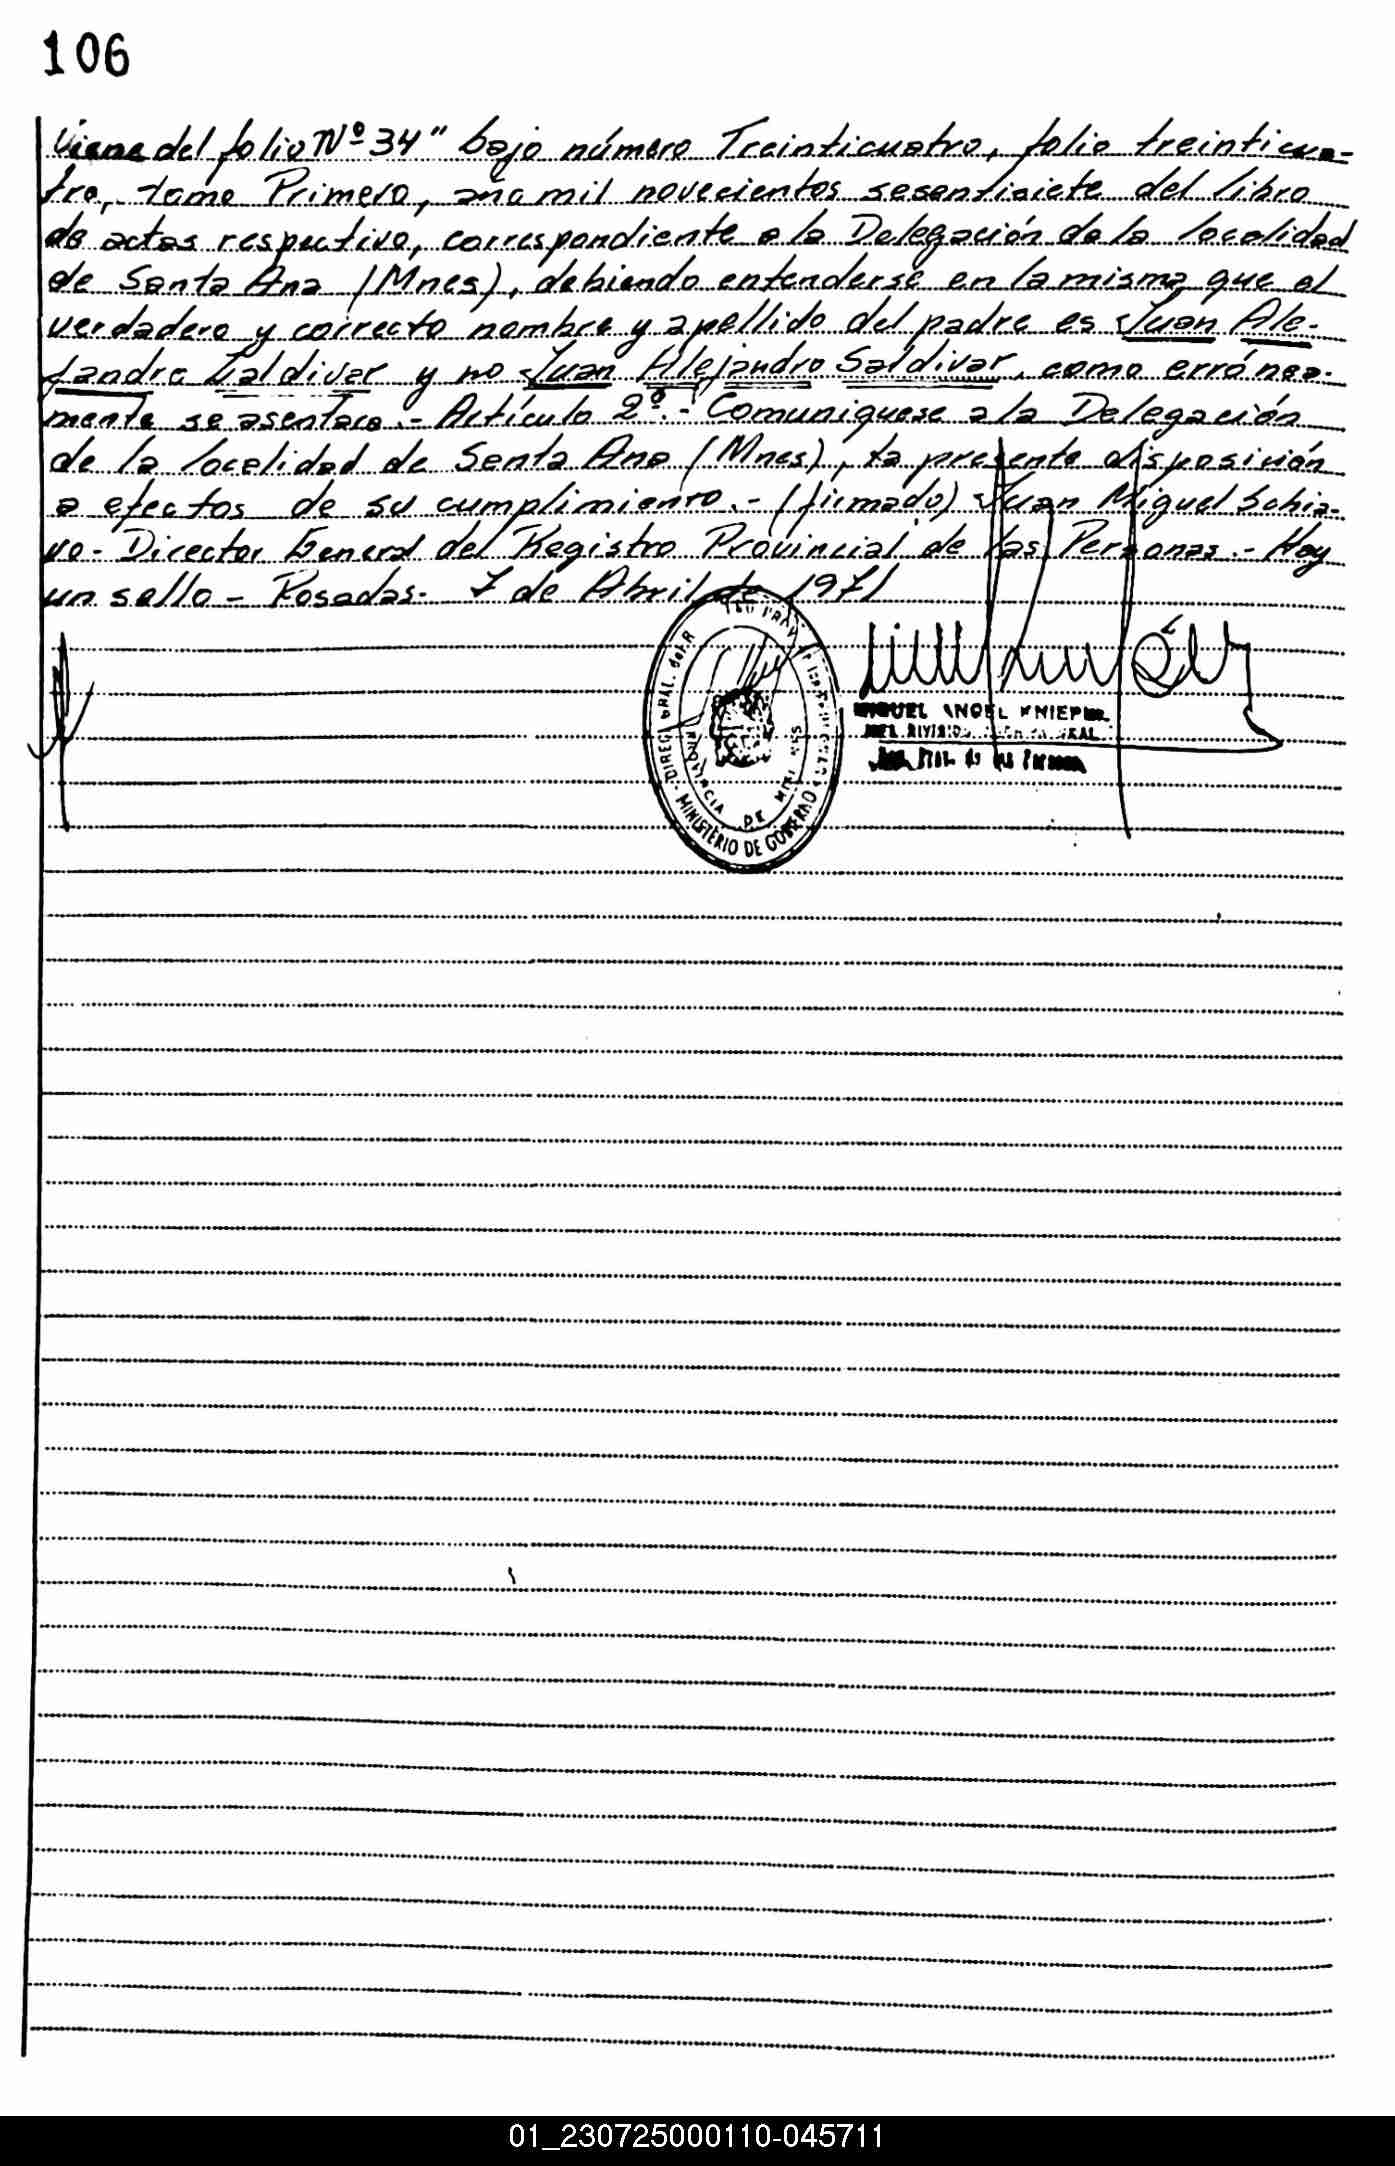 106
Viene del folio Nº 34" bajo número Treinticuatro, folio treinticua-
tro, tomo Primero, año mil novecientos sesentisiete del libro
de actas respectivo, correspondiente a la Delegación de la localidad
de Santa Ana (Mnes), debiendo entenderse en la misma que el
verdadero y correcto nombre y apellido del padre es Juan Ale-
jandro Zaldivar y no Juan Alejandro Saldivar, como erronea-
mente se asentara.- Artículo 2º.- Comuniquese a la Delegación
de la localidad de Santa Ana (Mnes), la presente disposición
a efectos de su cumplimiento.- (firmado) Juan Miguel Schia-
vo- Director General del Registro Provincial de las Personas.- Hay
un sello- Posadas- 7 de Abril de 1971
MIGUEL ANGEL KNIEPER
DIREC. GRAL. del R
PROVINCIA DE MISIONES
MINISTERIO DE GOBIERNO
01_230725000110-045711